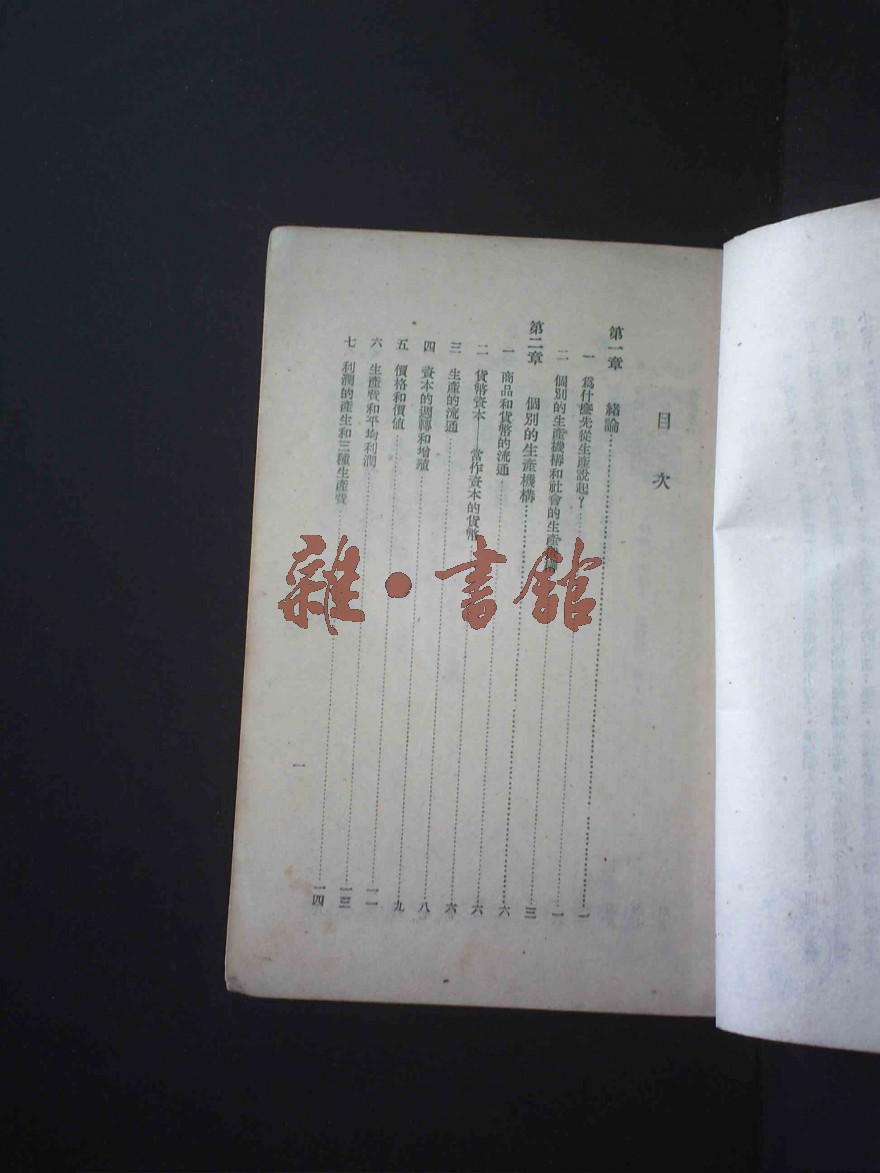 目次
第一章 緒論 一
一 爲什麽先從生產說起? 一
二 個別的生產機構和社會的生產 三
第二章 個別的生產機構 六
一 商品和貨幣的流通 六
二 貨幣資本——當作資本的貨幣 六
三 生產的流通 八
四 資本的週轉和增殖 九
五 價格和價値 一一
六 生產費和平均利潤 一三
七 利潤的產生和三種生產費 一四
一
雜·書館